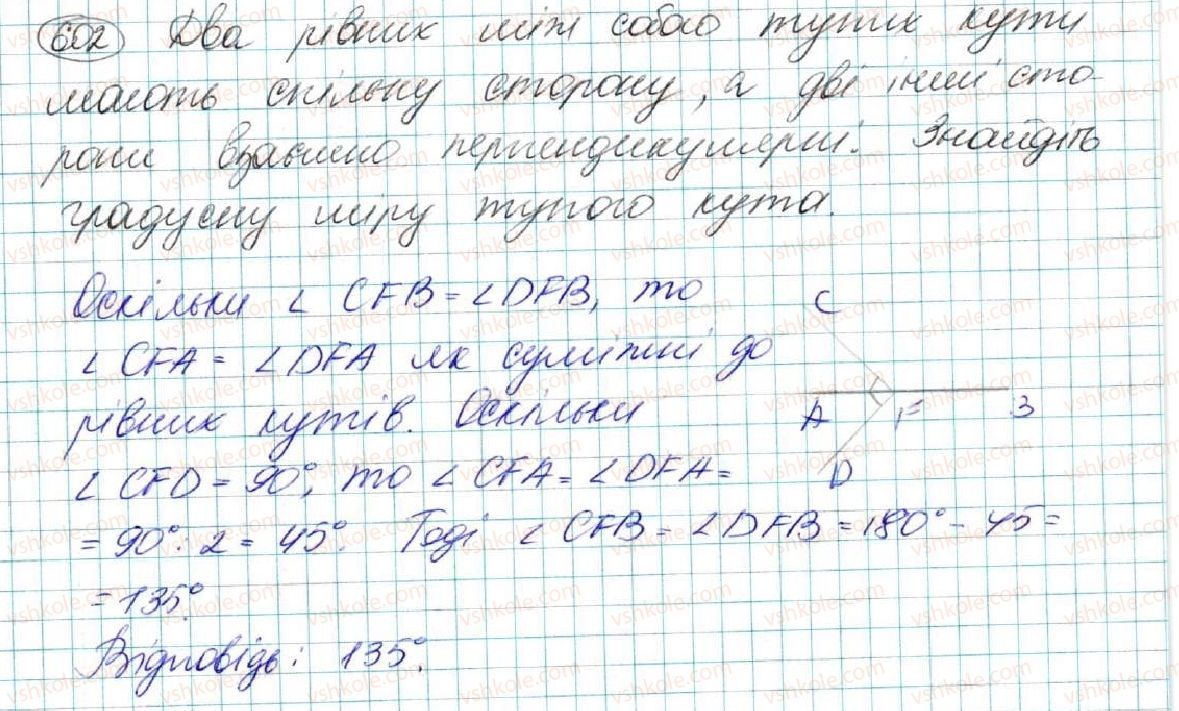 602 Два рівних між собою тупих кути
мають спільну сторону, а дві інші сто-
рони взаємно перпендикулярні. Знайдіть
градусну міру тупого кута.
Оскільки ∠ CFB = ∠DFB, то
∠ CFA = ∠DFA як суміжні до
рівних кутів. Оскільки
∠ CFD = 90°, то ∠ CFA = ∠DFA =
= 90° : 2 = 45°. Тоді ∠ CFB = ∠DFB = 180° - 45 =
= 135°.
Відповідь: 135°.
C
A F B
D
vshkole.com